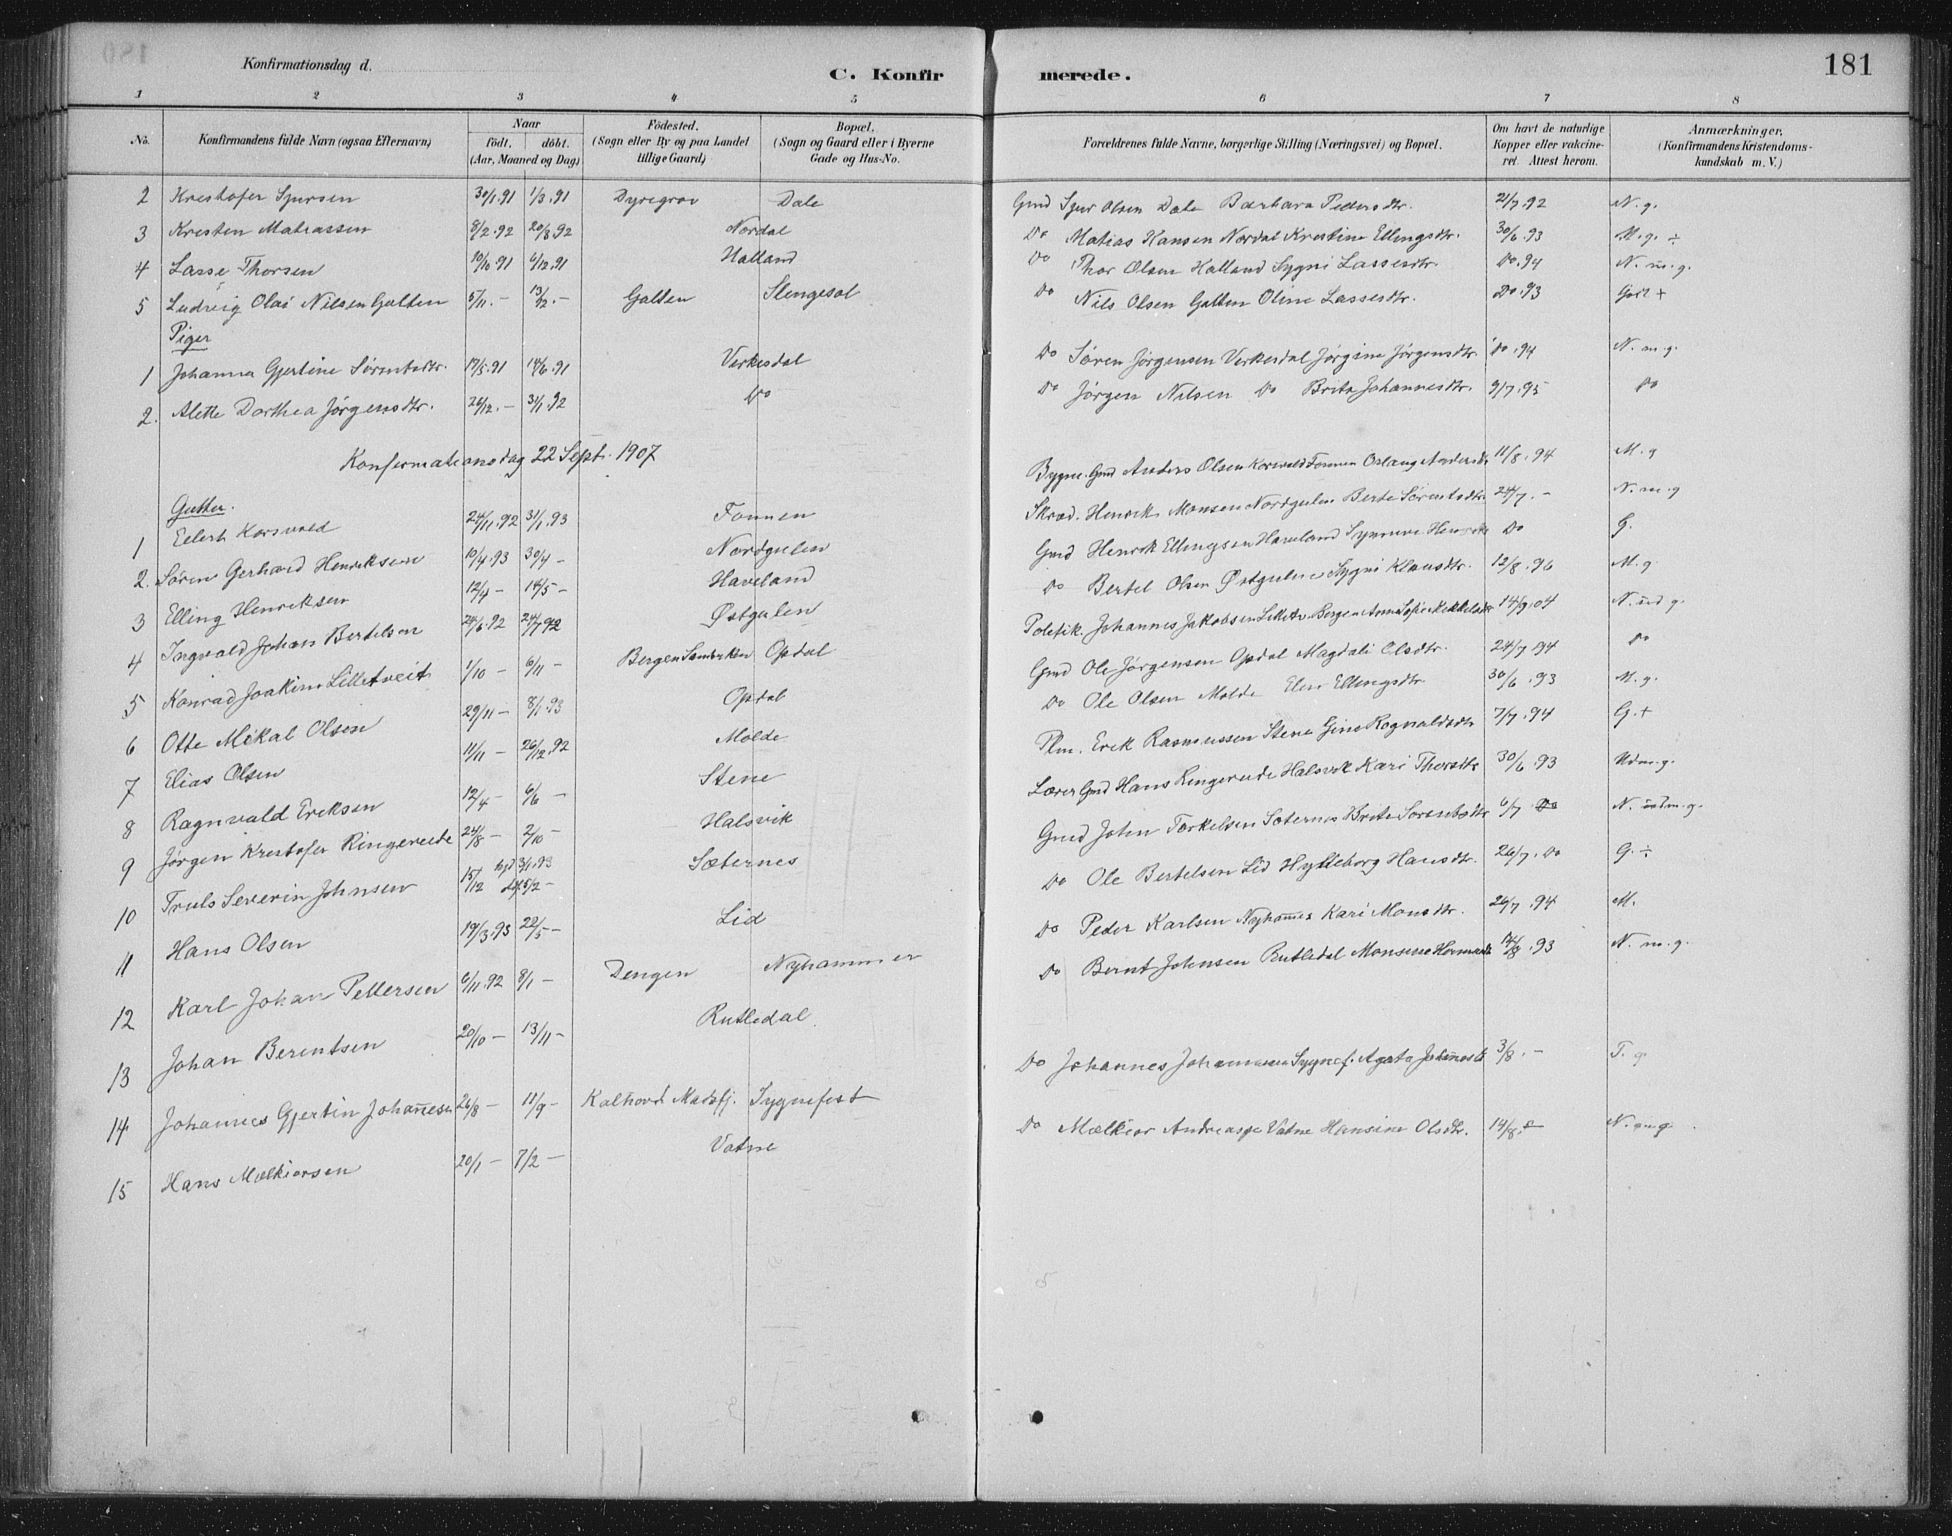 181
Konfirmationsdag d.
C. Konfirmerede.
1 2 3 4 5 6 7 8
No. Konfirmandens fulde Navn (ogsaa Efternavn) Naar födt. döbt. (Aar, Maaned og Dag) Födested. (Sogn eller By og paa Landet tillige Gaard) Bopæl. (Sogn og Gaard eller i Byerne Gade og Hus-No. Forældrenes fulde Navne, borgerlige Stilling (Næringsvei) og Bopæl. Om havt de naturlige Kopper eller vakcineret. Attest herom. Anmærkninger. (Konfirmandens Kristendomskundskab m. V.)
2 Krestofer Sjursen 30/1.91 1/3.91 Dyregrov Dale Gmd Sjur Olsen Dale Barbara Pedersdtr. 21/7.92 N. g.
3 Kresten Matiassen 8/2.92 20/3.92 Nordal Do Matias Hansen Nordal Krestine Ellingsdtr. 30/6.93 M. g. ÷
4 Lasse Thorsen 10/10.91 6/12.91 Halland Do Thor Olsen Halland Sygni Lassesdtr. Do.94 N. m. g.
5 Ludvig Olai Nilsen Galten 5/11.- 13/12.- Galten Slengesol Do Nils Olsen Galten Oline Lassesdtr. Do.93 God +
Piger
1 Johanna Gjertine Sørensdtr. 17/5.91 14/6.91 Verkesdal Do Søren Jørgensen Verkesdal Jørgine Jørgensdtr. Do.94 N. m. g.
2. Alette Dorthea Jørgensdtr. 26/12.- 31/1.92 Do Do Jørgen Nilsen Do Brita Johannesdtr. 9/7.95 Do
Konfermationsdag 22 Sept. 1907
Gutter.
1 Eilert Korsvold 24/11.92 31/1.93 Fonnen Bygm. Gmd Anders Olsen Korsvold Fonnen Oslaug Andersdtr 11/8.94 M. g
2. Søren Gerhard Henriksen 10/4.93 30/4 - Nordgulen Skræd. Henrik Monsen Nordgulen Berte Sørensdtr 24/7.- N. m. g
3 Elling Henriksen 12/4 - 14/5 - Haveland Gmd Henrik Ellingsen Haveland Synneve Do G.
4 Ingvald Johan Bertelsen 24/6.92 24/7 92 Østgulen Do Bertel Olsen Østgulen Sygni Klausdtr. 12/8.96 M. g
5 Konrad Joakim Lilletveit 1/10 - 6/11 - Bergen Opdal Johannes Jakobsen Bergen Anna Sofie 14/9.04
6 Otte Mikal Olsen 29/11 - 8/1.93 Opdal Gmd Ole Jørgensen Opdal Magdali Olsdtr. 24/7.94 Do
7 Elias Olsen 11/11 - 26/12.92 Molde Do Ole Olsen Molde Elen Ellingsdtr. 30/6.93 M. g.
8 Ragnvald Eriksen 12/4 - 6/6 - Stene Plm. Erik Rasmussen Stene Gine Rognaldsdtr 7/7.94 G. +
9 Jørgen Krestofer Ringereide 24/8 - 2/10 - Halsvik Lærer Gmd Hans Ringereide Halsvik Kari Thorsdtr 30/6.93 Udm. g.
10 Truls Severin Johnsen 15/12 hjd 3/1.93 5/2 - Sæternes Gmd John Torkelsen Sæternes Brita 6/7 Do N. udm. g.
11 Hans Olsen 19/3.93 22/5 - Lid Do Ole Bertelsen Lid Hylleborg Hansdtr. 26/7. Do G. ÷
12 Karl Johan Pettersen 6/11.92 8/1 - Dengen Nyhammer Do Peder Karlsen Nyhamer Kari Monsdtr. 26/7.94 M.
13 Johan Berentsen 20/10 - 13/11 - Rutledal Do Bernt Johnsen Rutledal Monsine 14/8.93 N. m. g.
14 Johannes Gjertin Johannesen 26/8 - 11/9 - Kalhovd Masfj. Sygnefest Do Johannes Johannessen Sygnef. Agata 3/8.- T. g.
15 Hans Mælkiorsen 20/1 - 7/2 - Vatne Do Mælkior Andreas Vatne Hansine Olsdtr. 14/8.- N. m. g.